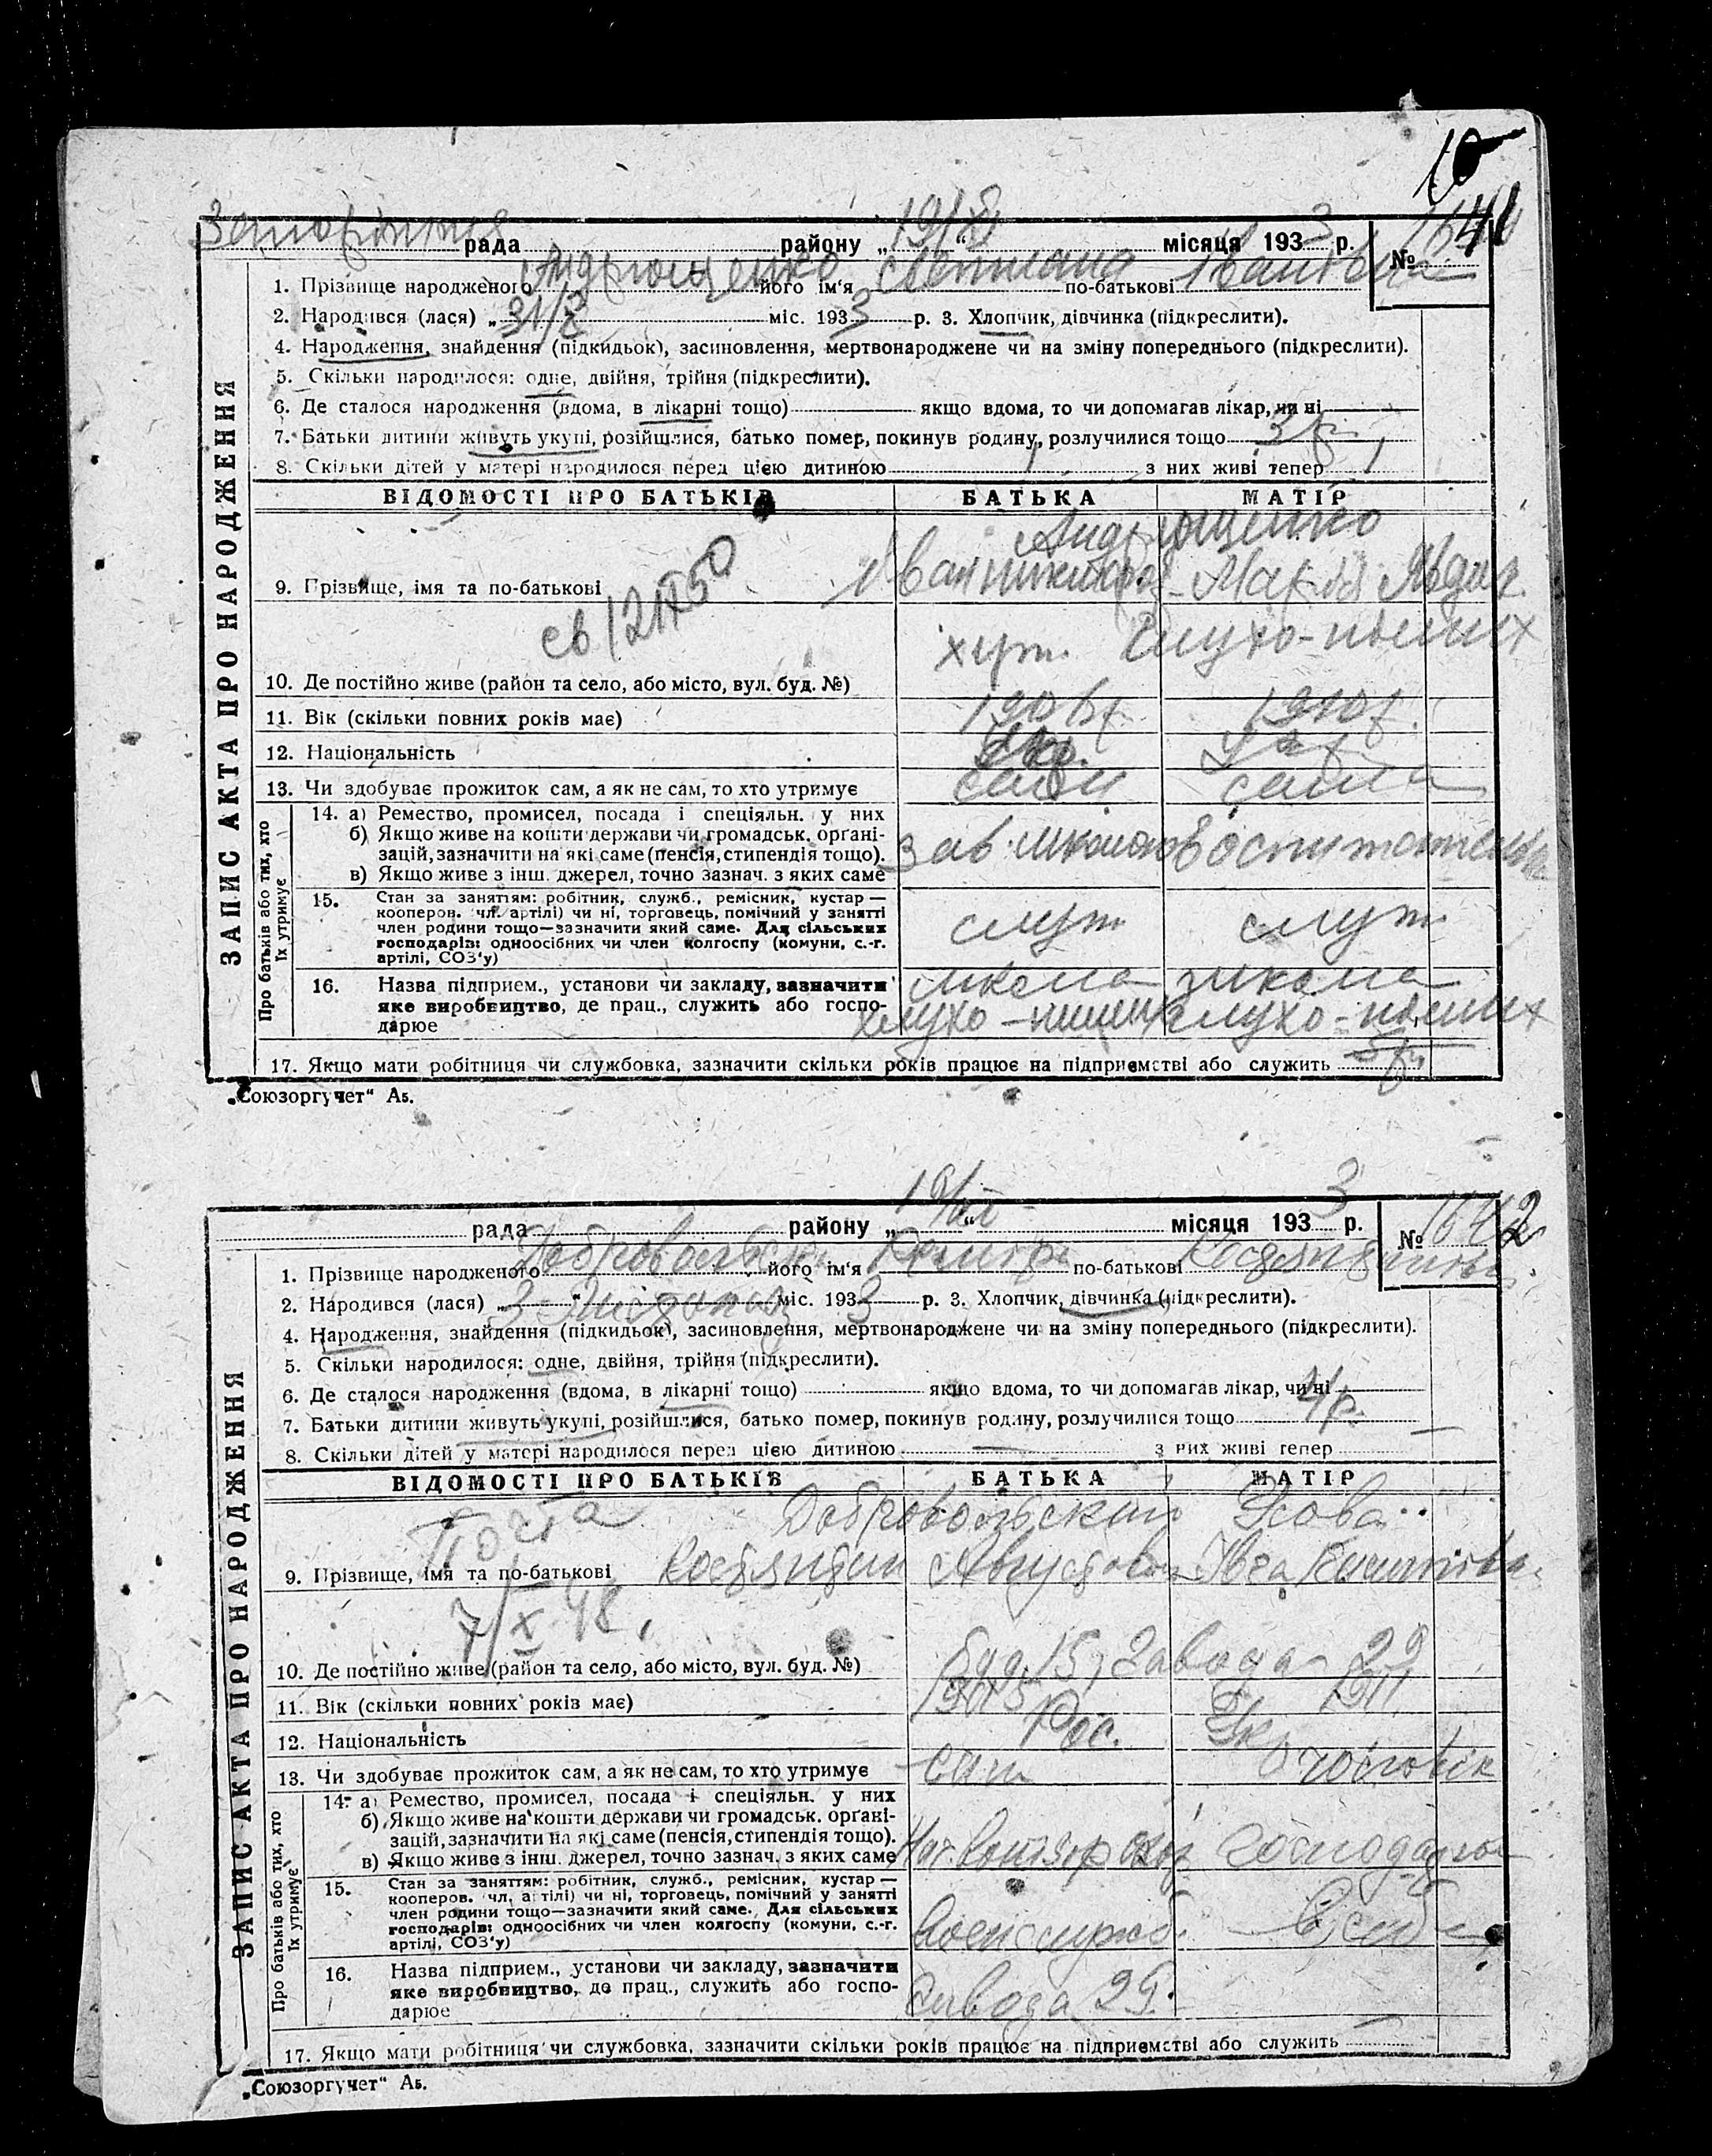 рада району „19/XI“ місяця 1933 р. №1641
1. Прізвище народженого Андрющенко його ім'я Светлана по-батькові Івановна
2. Народився (лася) „31/X міс. 1933 р. 3. Хлопчик, дівчинка (підкреслити).
4. Народження, знайдення (підкидьок), засиновлення, мертвонароджене чи на зміну попереднього (підкреслити).
5. Скільки народилося: одне, двійня, трійня (підкреслити).
6. Де сталося народження (вдома, в лікарні тощо) якщо вдома, то чи допомагав лікар, чи ні
7. Батьки дитини живуть укупі, розійшлися, батько помер, покинув родину, розлучилися тощо 3 р.
8. Скільки дітей у матері народилося перед цією дитиною 1 з них живі тепер 1
ЗАПИС АКТА ПРО НАРОДЖЕННЯ
ВІДОМОСТІ ПРО БАТЬКІВ БАТЬКА МАТІР
Андрющенко
9. Прізвище, імя та по-батькові Іван Марія
св
хут. глухо-немих
10. Де постійно живе (район та село, або місто, вул. буд. №)
11. Вік (скільки повних років має) 1906 р. 1910 р.
12. Національність Укр. Укр
13. Чи здобуває прожиток сам, а як не сам, то хто утримує сам сама
Про батьків або тих, хто їх утримує
14. а) Ремество, промисел, посада і спеціяльн. у них
б) Якщо живе на кошти держави чи громадськ. органі-
зацій, зазначити на які саме (пенсія, стипендія тощо).
в) Якщо живе з інш. джерел, точно зазнач. з яких саме
Зав. школою
15. Стан за заняттям: робітник, служб., ремісник, кустар —
кооперов. чл. артілі) чи ні, торговець, помічний у занятті
член родини тощо—зазначити який саме. Для сільських
господарів: одноосібних чи член колгоспу (комуни, с.-г.
артілі, СОЗ'у)
служ служ
16. Назва підприєм., установи чи закладу, зазначити
яке виробництво, де прац., служить або госпо-
дарює
школа школа
глухо-немих глухо-немих
17. Якщо мати робітниця чи службовка, зазначити скільки років працює на підприємстві або служить 5 р.
„Союзоргучет“ А5.
рада району „19/XI“ місяця 1933 р. №1642
1. Прізвище народженого його ім'я по-батькові
2. Народився (лася) „3 листопад міс. 1933 р. 3. Хлопчик, дівчинка (підкреслити).
4. Народження, знайдення (підкидьок), засиновлення, мертвонароджене чи на зміну попереднього (підкреслити).
5. Скільки народилося: одне, двійня, трійня (підкреслити).
6. Де сталося народження (вдома, в лікарні тощо) якщо вдома, то чи допомагав лікар, чи ні
7. Батьки дитини живуть укупі, розійшлися, батько помер, покинув родину, розлучилися тощо 4 р.
8. Скільки дітей у матері народилося перед цією дитиною з них живі тепер
ЗАПИС АКТА ПРО НАРОДЖЕННЯ
ВІДОМОСТІ ПРО БАТЬКІВ БАТЬКА МАТІР
Почта Добровольский
9. Прізвище, імя та по-батькові Костянтин Августович
7/X 48.
10. Де постійно живе (район та село, або місто, вул. буд. №) буд. 15, завода 29
11. Вік (скільки повних років має) 1905 1911
12. Національність Рос. Укр
13. Чи здобуває прожиток сам, а як не сам, то хто утримує сам чоловік
Про батьків або тих, хто їх утримує
14. а) Ремество, промисел, посада і спеціяльн. у них
б) Якщо живе на кошти держави чи громадськ. органі-
зацій, зазначити на які саме (пенсія, стипендія тощо).
в) Якщо живе з інш. джерел, точно зазнач. з яких саме
15. Стан за заняттям: робітник, служб., ремісник, кустар —
кооперов. чл. артілі) чи ні, торговець, помічний у занятті
член родини тощо—зазначити який саме. Для сільських
господарів: одноосібних чи член колгоспу (комуни, с.-г.
артілі, СОЗ'у)
16. Назва підприєм., установи чи закладу, зазначити
яке виробництво, де прац., служить або госпо-
дарює
завода 29.
17. Якщо мати робітниця чи службовка, зазначити скільки років працює на підприємстві або служить
„Союзоргучет“ А5.